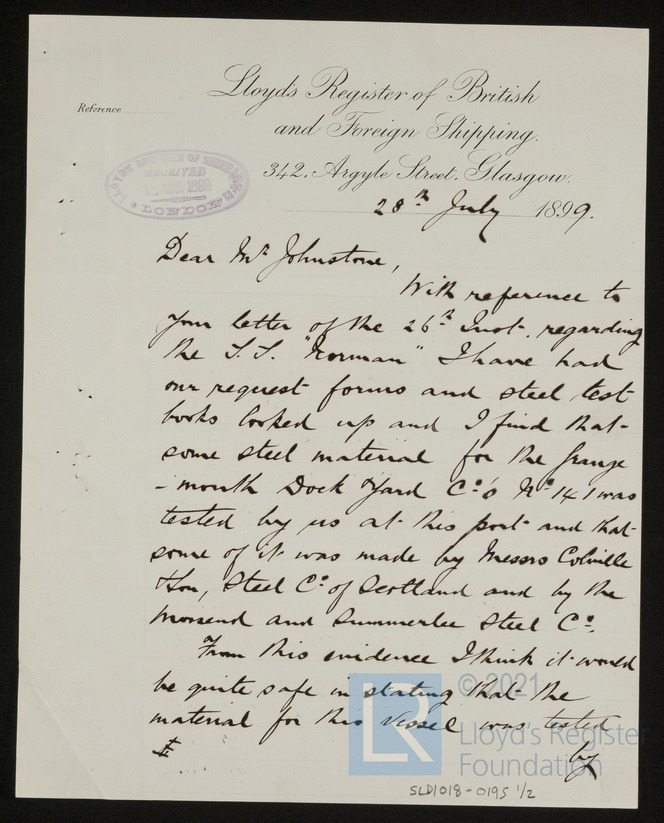 Lloyd's Register of British
and Foreign Shipping.
Reference
342, Argyle Street, Glasgow.
LLOYD'S REGISTER OF
RECEIVED
LONDON
28th July 1899.
Dear Mr Johnstone,
With reference to
your letter of the 26th Inst. regarding
the S.S. "Norman" I have had
our request forms and steel test
books looked up and I find that
some steel material for the Grange
-mouth Dock Yard Co's No 141 was
tested by us at this port and that
some of it was made by Messrs Colville
& Son, Steel Co of Scotland and by the
Mossend and Summerlee Steel Co.
From this evidence I think it would
be quite safe in stating that the
material for this vessel was tested
by
© 2021
LR
Lloyd's Register
Foundation
SLD1018-0195 1/2